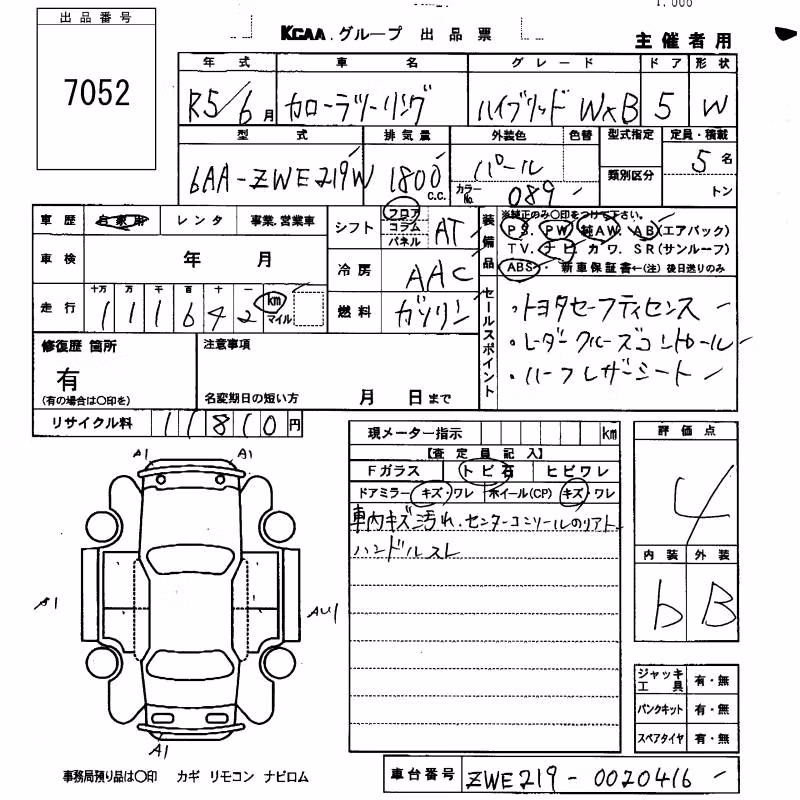 出品番号
7052
KCAA.グループ 出品票
1.000
主催者用
年式 車名 グレード ドア 形状
R5/6月 カローラツーリング ハイブリッド WxB 5 W
型式 排気量 外装色 色替 型式指定 定員・積載
6AA-ZWE219W 1800 c.c. パール 類別区分 5名
カラーNo. 089 トン
車歴 自家用 レンタ 事業.営業車
シフト フロア コラム パネル AT
装備品 ※純正のみ○印をつけて下さい。
PS. PW 純AW. AB(エアバック)
TV. ナビ カワ. SR(サンルーフ)
ABS・ 新車保証書←(注) 後日送りのみ
車検 年 月
冷房 AAC
走行 十万 万 千 百 十 一 km マイル
111642
燃料 ガソリン
セールスポイント
・トヨタセーフティセンス
・レーダークルーズコントロール
・ハーフレザーシート
修復歴 箇所
有
(有の場合は○印を)
注意事項
名変期日の短い方 月 日まで
リサイクル料 11810円
現メーター指示 km
【査定員記入】
Fガラス トビ石 ヒビワレ
ドアミラー キズ・ワレ ホイール(CP) キズ・ワレ
車内キズ汚れ.センターコンソールのリアト
ハンドルスレ
評価点
4
内装 外装
b B
A1 A1
A1
AU1
A1
ジャッキ工具 有・無
パンクキット 有・無
スペアタイヤ 有・無
事務局預り品は○印 カギ リモコン ナビロム
車台番号 ZWE219-0020416